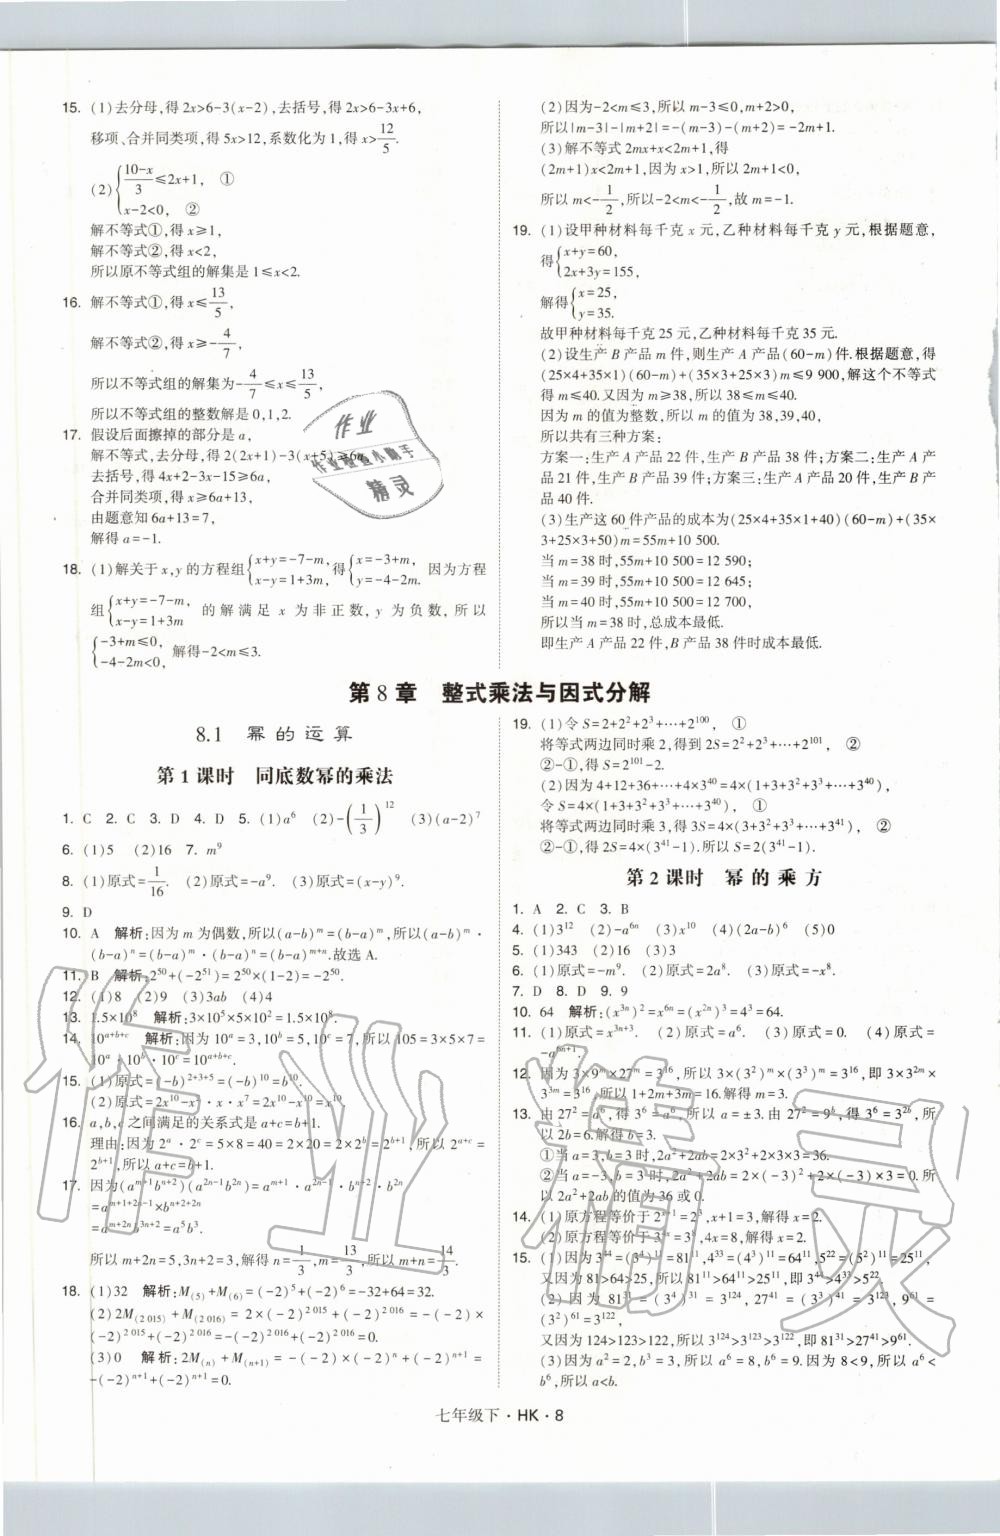 15. (1)去分母,得2x>6-3(x-2),去括号,得2x>6-3x+6,
移项、合并同类项,得5x>12,系数化为1,得x>12/5.
(2){(10-x)/3≤2x+1, ①
x-2<0, ②
解不等式①,得x≥1,
解不等式②,得x<2,
所以原不等式组的解集是1≤x<2.
16. 解不等式①,得x≤13/5,
解不等式②,得x≥-4/7,
所以不等式组的解集为-4/7≤x≤13/5,
所以不等式组的整数解是0,1,2.
17. 假设后面擦掉的部分是a,
解不等式,去分母,得2(2x+1)-3(x+5)≥6a,
去括号,得4x+2-3x-15≥6a,
合并同类项,得x≥6a+13,
由题意知6a+13=7,
解得a=-1.
18. (1)解关于x,y的方程组{x+y=-7-m, x-y=1+3m,得{x=-3+m, y=-4-2m. 因为方程
组{x+y=-7-m, x-y=1+3m的解满足x为非正数,y为负数,所以
{-3+m≤0, -4-2m<0, 解得-2<m≤3.
(2)因为-2<m≤3,所以m-3≤0,m+2>0,
所以|m-3|-|m+2|=-(m-3)-(m+2)=-2m+1.
(3)解不等式2mx+x<2m+1,得
(2m+1)x<2m+1,因为x>1,所以2m+1<0,
所以m<-1/2,所以-2<m<-1/2,故m=-1.
19. (1)设甲种材料每千克x元,乙种材料每千克y元,根据题意,
得{x+y=60, 2x+3y=155,
解得{x=25, y=35.
故甲种材料每千克25元,乙种材料每千克35元.
(2)设生产B产品m件,则生产A产品(60-m)件.根据题意,得
(25×4+35×1)(60-m)+(35×3+25×3)m≤9 900,解这个不等式
得m≤40.又因为m≥38,所以38≤m≤40.
因为m的值为整数,所以m的值为38,39,40,
所以共有三种方案:
方案一:生产A产品22件,生产B产品38件;方案二:生产A产
品21件,生产B产品39件;方案三:生产A产品20件,生产B产
品40件.
(3)生产这60件产品的成本为(25×4+35×1+40)(60-m)+(35×
3+25×3+50)m=55m+10 500.
当m=38时,55m+10 500=12 590;
当m=39时,55m+10 500=12 645;
当m=40时,55m+10 500=12 700,
所以当m=38时,总成本最低.
即生产A产品22件,B产品38件时成本最低.
第8章 整式乘法与因式分解
8.1 幂的运算
第1课时 同底数幂的乘法
1. C 2. C 3. D 4. D 5. (1)a⁶ (2)-(1/3)¹² (3)(a-2)⁷
6. (1)5 (2)16 7. m⁹
8. (1)原式=1/16. (2)原式=-a⁹. (3)原式=(x-y)⁹.
9. D
10. A 解析:因为m为偶数,所以(a-b)ᵐ=(b-a)ᵐ,所以(a-b)ᵐ·
(b-a)ⁿ=(b-a)ᵐ·(b-a)ⁿ=(b-a)ᵐ⁺ⁿ.故选A.
11. B 解析:2⁵⁰+(-2⁵¹)=2⁵⁰×(1-2)=-2⁵⁰.
12. (1)8 (2)9 (3)3ab (4)4
13. 1.5×10⁸ 解析:3×10⁵×5×10²=1.5×10⁸.
14. 10ᵃ⁺ᵇ⁺ᶜ 解析:因为10ᵃ=3,10ᵇ=5,10ᶜ=7,所以105=3×5×7=
10ᵃ·10ᵇ·10ᶜ=10ᵃ⁺ᵇ⁺ᶜ.
15. (1)原式=(-b)²⁺³⁺⁵=(-b)¹⁰=b¹⁰.
(2)原式=2x¹⁰-x⁷·x·x²=2x¹⁰-x¹⁰=x¹⁰.
16. a,b,c之间满足的关系式是a+c=b+1.
理由:因为2ᵃ·2ᶜ=5×8=40=2×20=2×2ᵇ=2ᵇ⁺¹,所以2ᵃ⁺ᶜ=
2ᵇ⁺¹,所以a+c=b+1.
17. 因为(aᵐ⁺¹bⁿ⁺²)(a²ⁿ⁻¹b²ⁿ)=aᵐ⁺¹·a²ⁿ⁻¹·bⁿ⁺²·b²ⁿ
=aᵐ⁺¹⁺²ⁿ⁻¹×bⁿ⁺²⁺²ⁿ
=aᵐ⁺²ⁿb³ⁿ⁺²=a⁵b³.
所以m+2n=5,3n+2=3,解得n=1/3,m=13/3,所以m+n=14/3.
18. (1)32 解析:M₍₅₎+M₍₆₎=(-2)⁵+(-2)⁶=-32+64=32.
(2)2M₍₂₀₁₅₎+M₍₂₀₁₆₎=2×(-2)²⁰¹⁵+(-2)²⁰¹⁶=-(-2)×
(-2)²⁰¹⁵+(-2)²⁰¹⁶=-(-2)²⁰¹⁶+(-2)²⁰¹⁶=0.
(3)0 解析:2M₍ₙ₎+M₍ₙ₊₁₎=-(-2)×(-2)ⁿ+(-2)ⁿ⁺¹=
-(-2)ⁿ⁺¹+(-2)ⁿ⁺¹=0.
19. (1)令S=2+2²+2³+…+2¹⁰⁰, ①
将等式两边同时乘2,得到2S=2²+2³+…+2¹⁰¹, ②
②-①,得S=2¹⁰¹-2.
(2)因为4+12+36+…+4×3⁴⁰=4×(1+3+3²+3³+…+3⁴⁰),
令S=4×(1+3+3²+3³+…+3⁴⁰), ①
将等式两边同时乘3,得3S=4×(3+3²+3³+…+3⁴¹), ②
②-①,得2S=4×(3⁴¹-1).所以S=2(3⁴¹-1).
第2课时 幂的乘方
1. A 2. C 3. B
4. (1)3¹² (2)-a⁶ⁿ (3)x¹⁰ (4)(2a-b)⁶ (5)0
5. (1)343 (2)16 (3)3
6. (1)原式=-m⁹. (2)原式=2a⁸. (3)原式=-x⁸.
7. D 8. D 9. 9
10. 64 解析:(x³ⁿ)²=x⁶ⁿ=(x²ⁿ)³=4³=64.
11. (1)原式=x³ⁿ⁺³. (2)原式=a⁶. (3)原式=0. (4)原式=
-a⁶ⁿ⁺¹.
12. 因为3×9ᵐ×27ᵐ=3¹⁶,所以3×(3²)ᵐ×(3³)ᵐ=3¹⁶,即3×3²ᵐ×
3³ᵐ=3¹⁶,所以1+2m+3m=16.解得m=3.
13. 由27²=a⁶,得3⁶=a⁶,所以a=±3.由27²=9ᵇ,得3⁶=3²ᵇ,所
以2b=6.解得b=3.
①当a=3,b=3时,2a²+2ab=2×3²+2×3×3=36.
②当a=-3,b=3时,2a²+2ab=2×(-3)²+2×(-3)×3=0.所
以2a²+2ab的值为36或0.
14. (1)原方程等价于2ˣ⁺¹=2³,x+1=3,解得x=2.
(2)原方程等价于3⁴ˣ=3⁸,4x=8,解得x=2.
15. (1)因为3⁴⁴=(3⁴)¹¹=81¹¹,4³³=(4³)¹¹=64¹¹,5²²=(5²)¹¹=25¹¹,
又因为81>64>25,所以81¹¹>64¹¹>25¹¹,即3⁴⁴>4³³>5²².
(2)因为81³¹=(3⁴)³¹=3¹²⁴,27⁴¹=(3³)⁴¹=3¹²³,9⁶¹=
(3²)⁶¹=3¹²²,
又因为124>123>122,所以3¹²⁴>3¹²³>3¹²²,即81³¹>27⁴¹>9⁶¹.
(3)因为a²=2,b³=3,所以a⁶=8,b⁶=9.因为8<9,所以a⁶<
b⁶,所以a<b.
七年级下·HK·8
作业
作业检查小助手
精灵
作业精灵